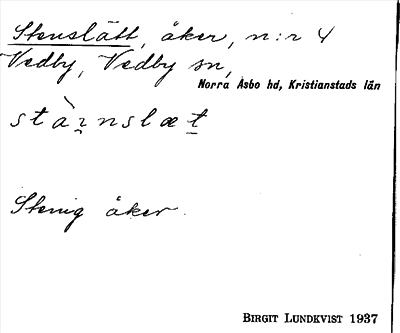 Stenslätt, åker, n:r 4
Vedby, Vedby sn,
Norra Åsbo hd, Kristianstads län
Stenig åker.
BIRGIT LUNDKVIST 1937